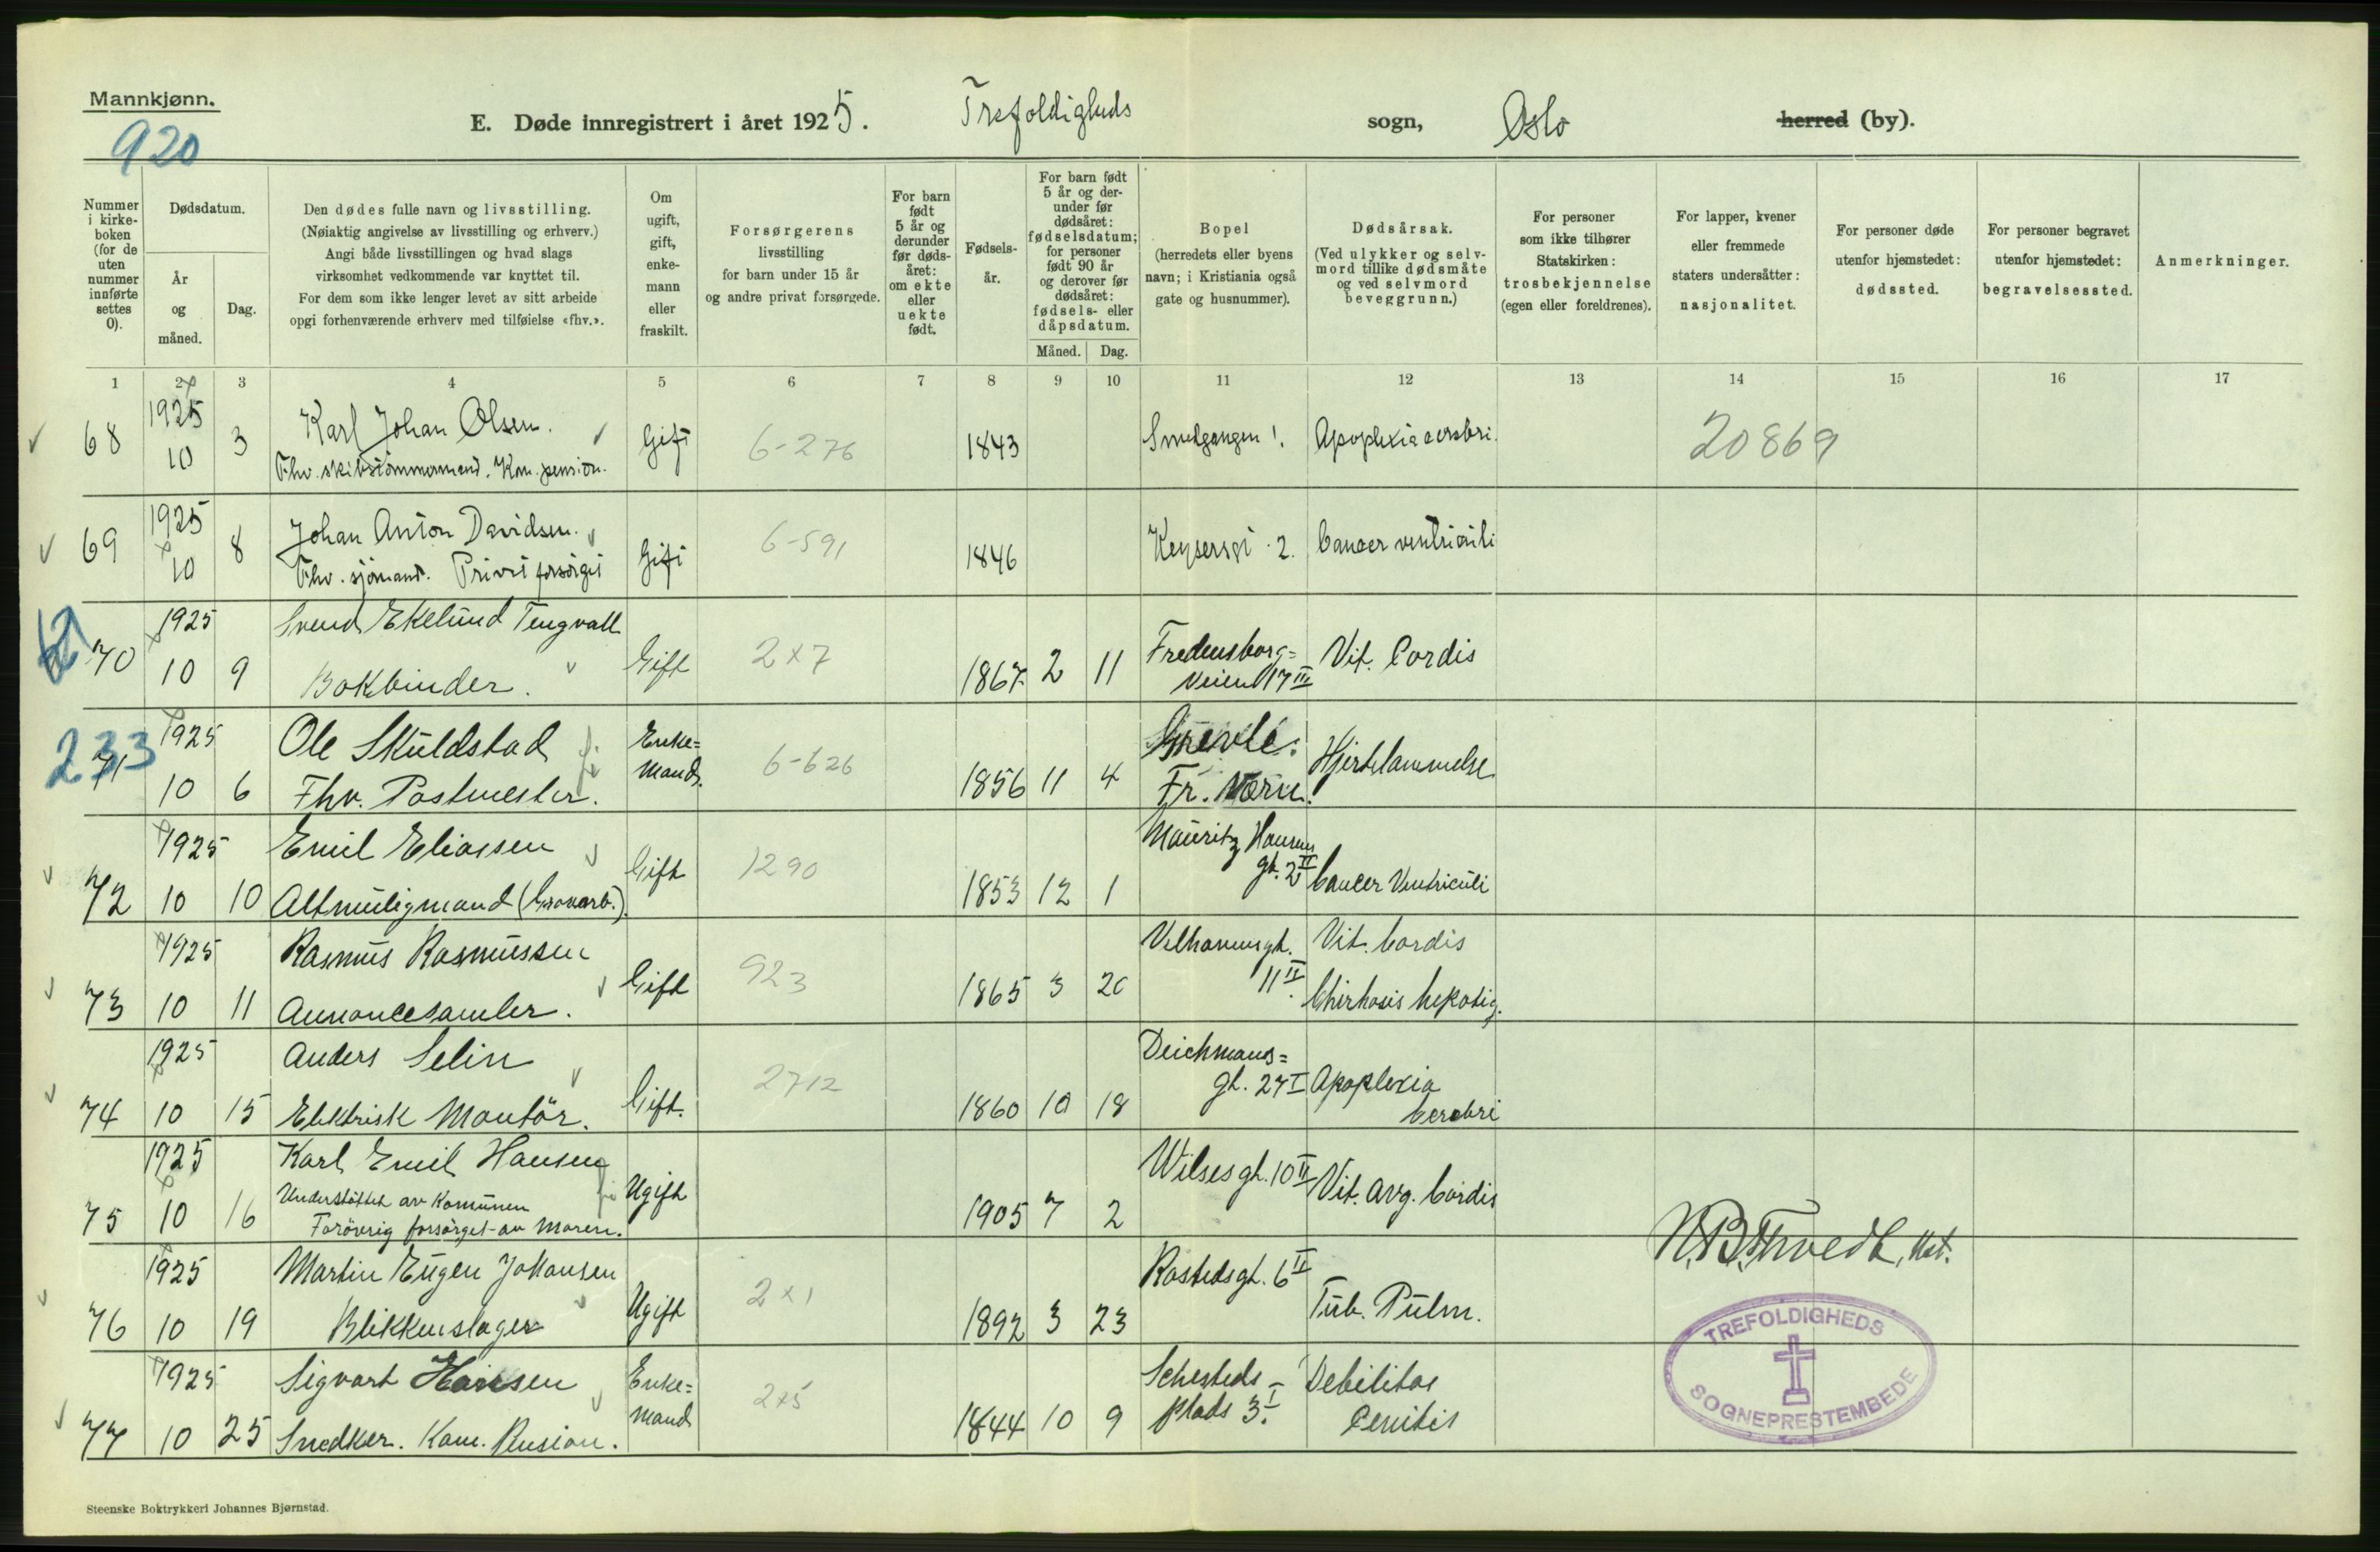 Mannkjønn.
920
E. Døde innregistrert i året 1925. Trefoldigheds sogn, Oslo herred (by).
Nummer i kirkeboken (for de uten nummer innførte settes 0).
Dødsdatum.
År og måned.
Dag.
Den dødes fulle navn og livsstilling.
(Nøiaktig angivelse av livsstilling og erhverv.)
Angi både livsstillingen og hvad slags
virksomhet vedkommende var knyttet til.
For dem som ikke lenger levet av sitt arbeide
opgi forhenværende erhverv med tilføielse «fhv.».
Om ugift, gift, enkemann eller fraskilt.
Forsørgerens
livsstilling
for barn under 15 år
og andre privat forsørgede.
For barn født 5 år og derunder før dødsåret: om ekte eller uekte født.
Fødselsår.
For barn født 5 år og derunder før dødsåret: fødselsdatum; for personer født 90 år og derover før dødsåret: fødsels- eller dåpsdatum.
Måned. Dag.
Bopel
(herredets eller byens
navn; i Kristiania også
gate og husnummer).
Dødsårsak.
(Ved ulykker og selvmord tillike dødsmåte
og ved selvmord
beveggrunn.)
For personer
som ikke tilhører
Statskirken:
trosbekjennelse
(egen eller foreldrenes).
For lapper, kvener
eller fremmede
staters undersåtter:
nasjonalitet.
For personer døde
utenfor hjemstedet:
dødssted.
For personer begravet
utenfor hjemstedet:
begravelsessted.
Anmerkninger.
1 2 3 4 5 6 7 8 9 10 11 12 13 14 15 16 17
68 1925 10 3 Karl Johan Olsen. Gift 6-276 1843 Smedgangen 1. Apoplexia cerebri. 20869
Fhv. skibstømmermand. Kom. pension.
69 1925 10 8 Johan Anton Davidsen. Gift 6-591 1846 Keysersgt. 2. Cancer ventriculi
Fhv. sjömand. Privat forsörget
70 1925 10 9 Svend Ekelund Tengvall Gift 2x7 1867 2 11 Fredensborg=
veien 17 III Vit. Cordis
Bokbinder.
233
71 1925 10 6 Ole Skuldstad Enke=
mand. 6-626 1856 11 4 Hjertelammelse
Fhv. Postmester. Fr. Værn.
72 1925 10 10 Emil Eliassen Gift 1290 1853 12 1 Mauritz Hansens
gt. 2 II Cancer Ventriculi
Altmuligmand (Grovarb.).
73 1925 10 11 Rasmus Rasmussen Gift 923 1865 3 20 Welhavensgt.
11 II Vit. Cordis
Annoncesamler. Chirhosis hepatig.
74 1925 10 15 Anders Selin Gift. 2712 1860 10 18 Deichmans=
gt. 27 I Apoplexia
cerebri
Elektrisk Montör.
75 1925 10 16 Karl Emil Hansen Ugift 1905 7 2 Wilsesgt. 10 II Vit. Org. Cordis
Understöttet av Komunen
Forövrig forsörget av Moren.
N.B. Thvedt, Kst.
76 1925 10 19 Martin Eugen Johansen Ugift 2x1 1892 3 23 Rostedsgt. 6 II Tub. Pulm.
Blikkenslager
77 1925 10 25 Sigvart Hansen Enke=
mand 2x5 1844 10 9 Sehesteds-
plads 3 I. Debilitas
Cenitis
Snedker. Kom. Pension.
TREFOLDIGHEDS
SOGNEPRESTEMBEDE
Steenske Boktrykkeri Johannes Bjørnstad.